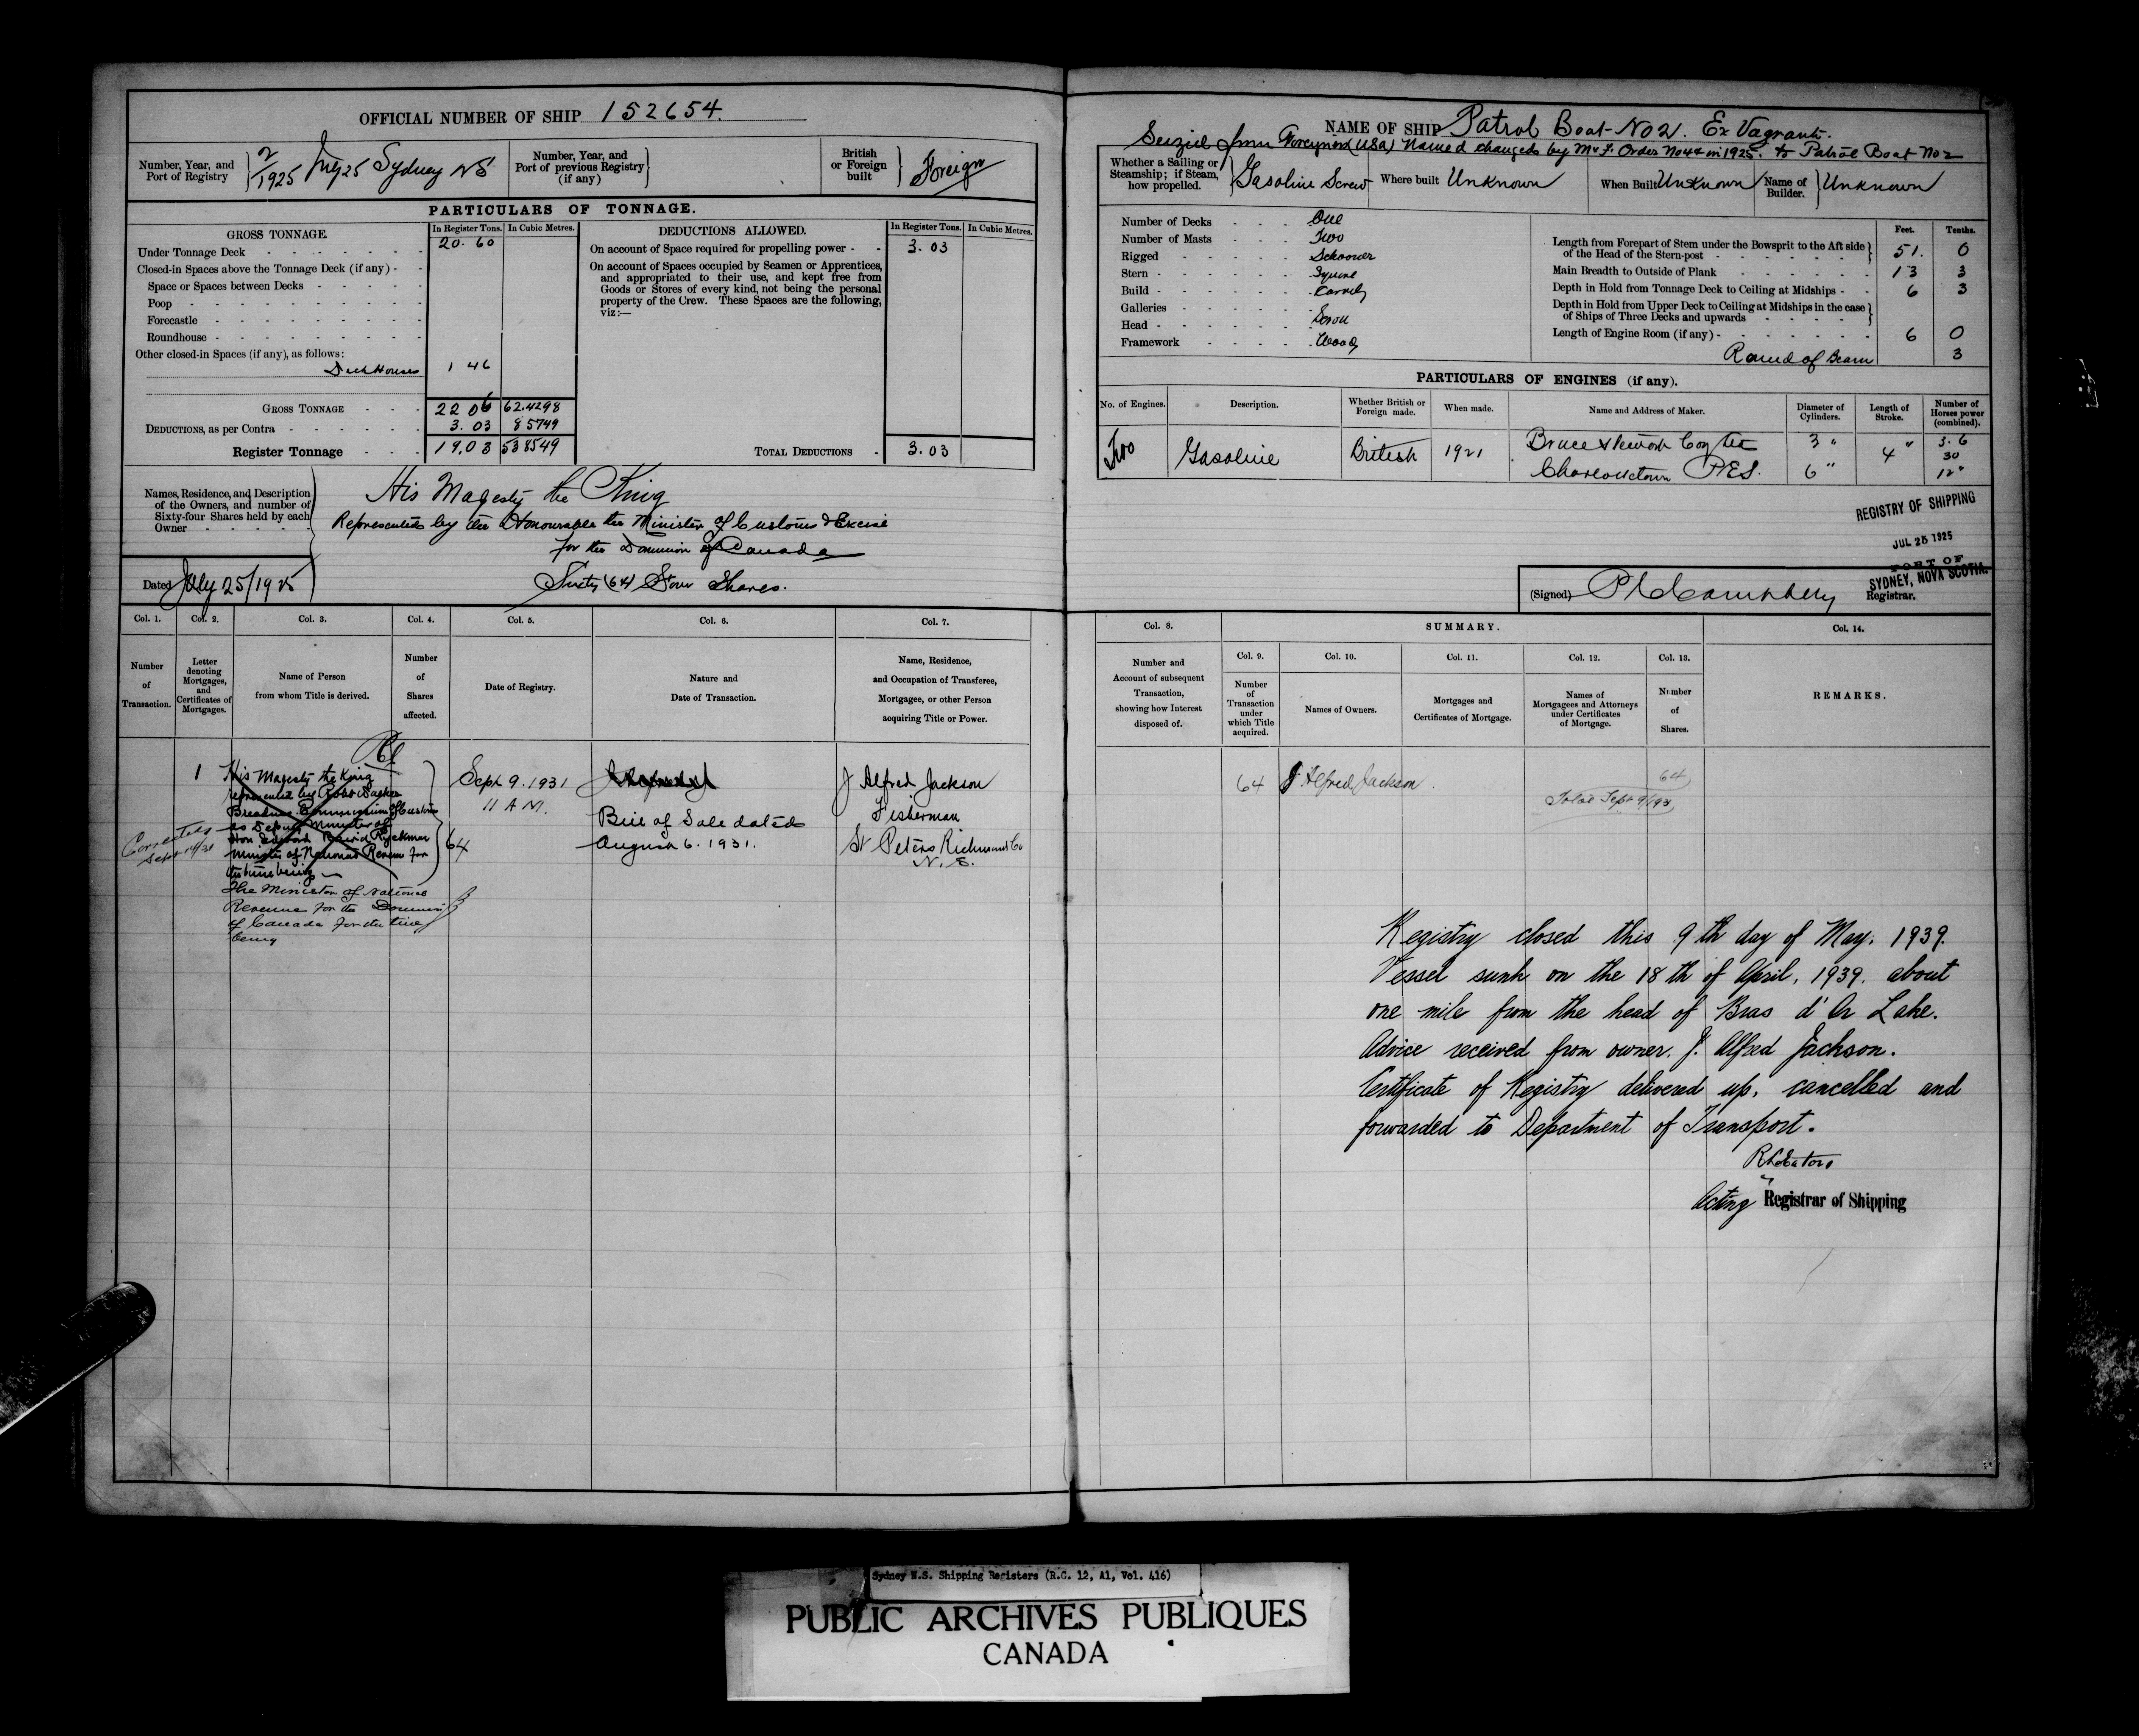 OFFICIAL NUMBER OF SHIP 152654.
Number, Year, and Port of Registry } 2/1925 July 25 Sydney NS
Number, Year, and Port of previous Registry (if any) }
British or Foreign built } Foreign
PARTICULARS OF TONNAGE.
GROSS TONNAGE. In Register Tons. In Cubic Metres.
Under Tonnage Deck 20.60
Closed-in Spaces above the Tonnage Deck (if any)
Space or Spaces between Decks
Poop
Forecastle
Roundhouse
Other closed-in Spaces (if any), as follows:
Deck Houses 1 46
GROSS TONNAGE 22 06 62.4298
DEDUCTIONS, as per Contra 3.03 8 5749
Register Tonnage 19.03 538549
DEDUCTIONS ALLOWED. In Register Tons. In Cubic Metres.
On account of Space required for propelling power 3.03
On account of Spaces occupied by Seamen or Apprentices,
and appropriated to their use, and kept free from
Goods or Stores of every kind, not being the personal
property of the Crew. These Spaces are the following,
viz:—
TOTAL DEDUCTIONS 3.03
Names, Residence, and Description
of the Owners, and number of
Sixty-four Shares held by each
Owner
His Majesty the King
Represented by the Honourable the Minister of Customs & Excise
for the Dominion of Canada
Sixty (64) Four Shares.
Dated July 25/1925
Col. 1. Col. 2. Col. 3. Col. 4. Col. 5. Col. 6. Col. 7.
Number of Transaction.
Letter denoting Mortgages, and Certificates of Mortgages.
Name of Person from whom Title is derived.
Number of Shares affected.
Date of Registry.
Nature and Date of Transaction.
Name, Residence, and Occupation of Transferee, Mortgagee, or other Person acquiring Title or Power.
1
His Majesty the King
represented by
as Deputy Minister of
Minister of National Revenue for
the time being
Corrected
Sept
The Minister of National
Revenue for the Dominion
of Canada for the time
being
64
Sept 9. 1931
11 A M.
Bill of Sale dated
August 6. 1931.
J Alfred Jackson
Fisherman
St Peters Richmond Co
N. S.
NAME OF SHIP Patrol Boat No 2. Ex Vagrant.
Seized from Foreigners (USA) Named changed by M & F. Order No 44 in 1925. to Patrol Boat No 2
Whether a Sailing or Steamship; if Steam, how propelled. } Gasoline Screw
Where built Unknown
When Built Unknown
Name of Builder. } Unknown
Number of Decks One
Number of Masts Two
Rigged Schooner
Stern Square
Build Carvel
Galleries
Head Scroll
Framework Wood
Feet. Tenths.
Length from Forepart of Stem under the Bowsprit to the Aft side of the Head of the Stern-post 51. 0
Main Breadth to Outside of Plank 13 3
Depth in Hold from Tonnage Deck to Ceiling at Midships 6 3
Depth in Hold from Upper Deck to Ceiling at Midships in the case of Ships of Three Decks and upwards
Length of Engine Room (if any) 6 0
Round of Beam 3
PARTICULARS OF ENGINES (if any).
No. of Engines. Description. Whether British or Foreign made. When made. Name and Address of Maker. Diameter of Cylinders. Length of Stroke. Number of Horses power (combined).
Two Gasoline British 1921 Bruce Stewart Coy Ltd 3" 4" 3.6
30
Charlottetown P.E.I. 6" 12"
REGISTRY OF SHIPPING
JUL 25 1925
PORT OF
SYDNEY, NOVA SCOTIA.
(Signed) Registrar.
Col. 8. SUMMARY. Col. 14.
Col. 9. Col. 10. Col. 11. Col. 12. Col. 13.
Number and Account of subsequent Transaction, showing how Interest disposed of.
Number of Transaction under which Title acquired.
Names of Owners.
Mortgages and Certificates of Mortgage.
Names of Mortgagees and Attorneys under Certificates of Mortgage.
Number of Shares.
REMARKS.
64 J. Alfred Jackson 64
Total Sept 9/1931
Registry closed this 9th day of May, 1939.
Vessel sunk on the 18th of April, 1939. about
one mile from the head of Bras d'Or Lake.
Advice received from owner. J. Alfred Jackson.
Certificate of Registry delivered up, cancelled and
forwarded to Department of Transport.
Acting Registrar of Shipping
Sydney N.S. Shipping Registers (R.G. 12, A1, Vol. 416)
PUBLIC ARCHIVES PUBLIQUES
CANADA